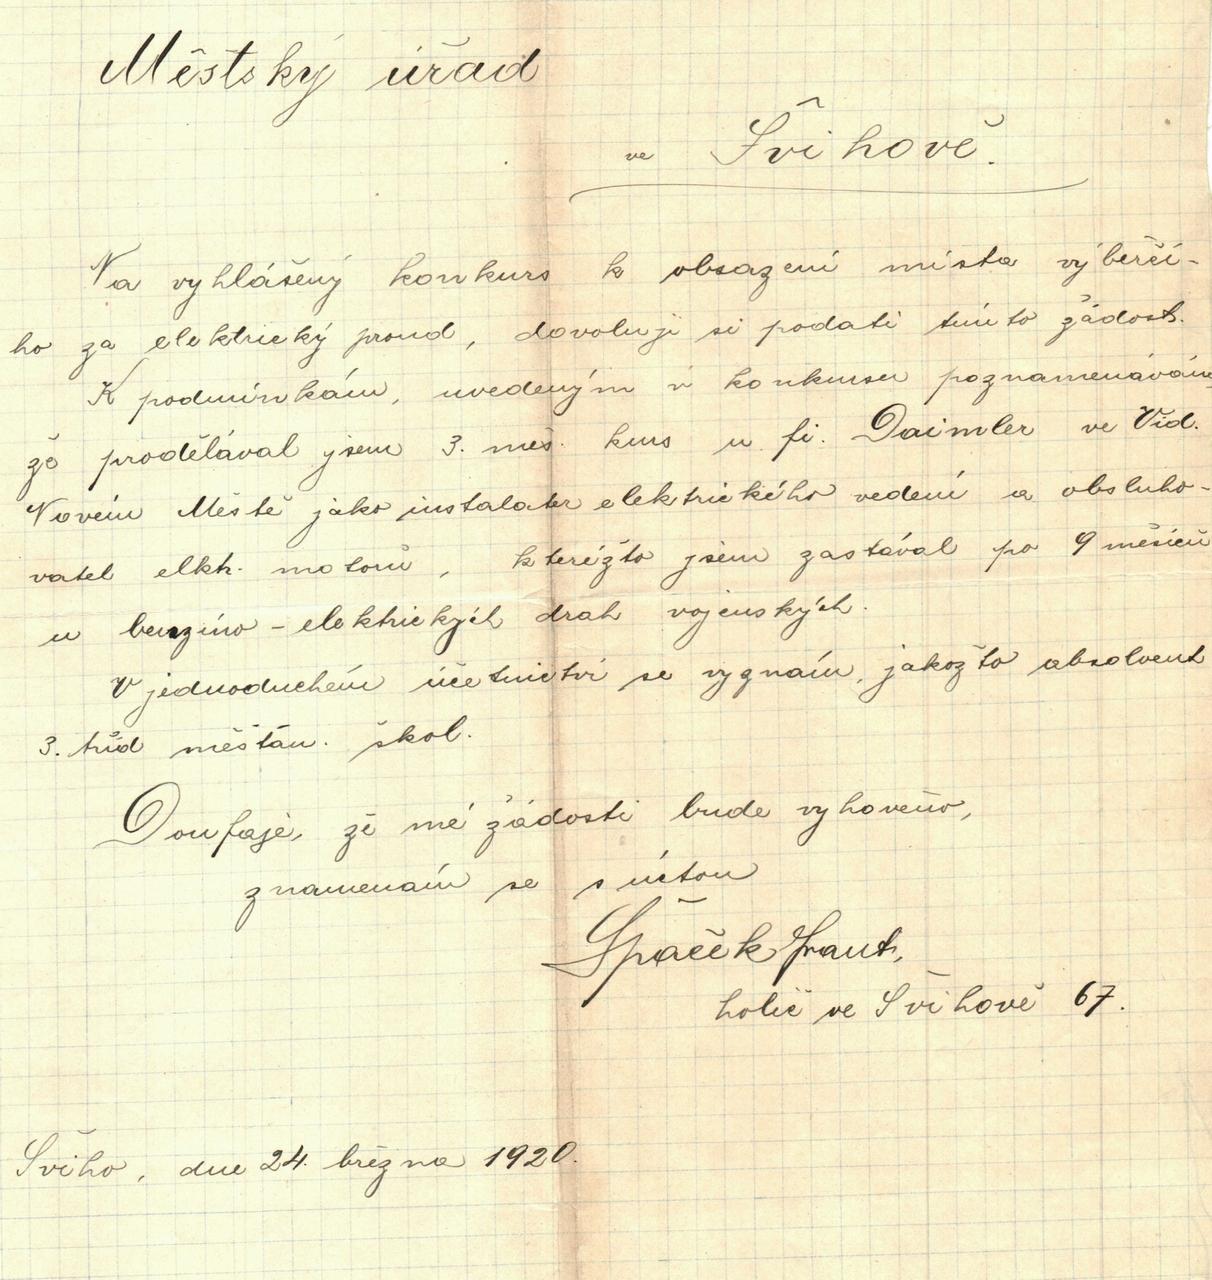 Městský úřad
ve Švihově.
Na vyhlášený konkurs k obsazení místa výběrčí-
ho za elektrický proud, dovoluji si podati tuto žádost.
K podmínkám, uvedeným v konkursu poznamenávám,
že prodělával jsem 3. měs. kurs u fi. Daimler ve Víd.
Novém Městě jako instalater elektrického vedení a obsluho-
vatel elkh. motorů, kteréžto jsem zastával po 9 měsíců
u benzino-elektrických drah vojenských.
V jednoduchém účetnictví se vyznám, jakožto absolvent
3. tříd měšťan. škol.
Doufaje, že mé žádosti bude vyhověno,
znamenám se s úctou
Špaček Frant.
holič ve Švihově 67.
Šviho, dne 24. března 1920.